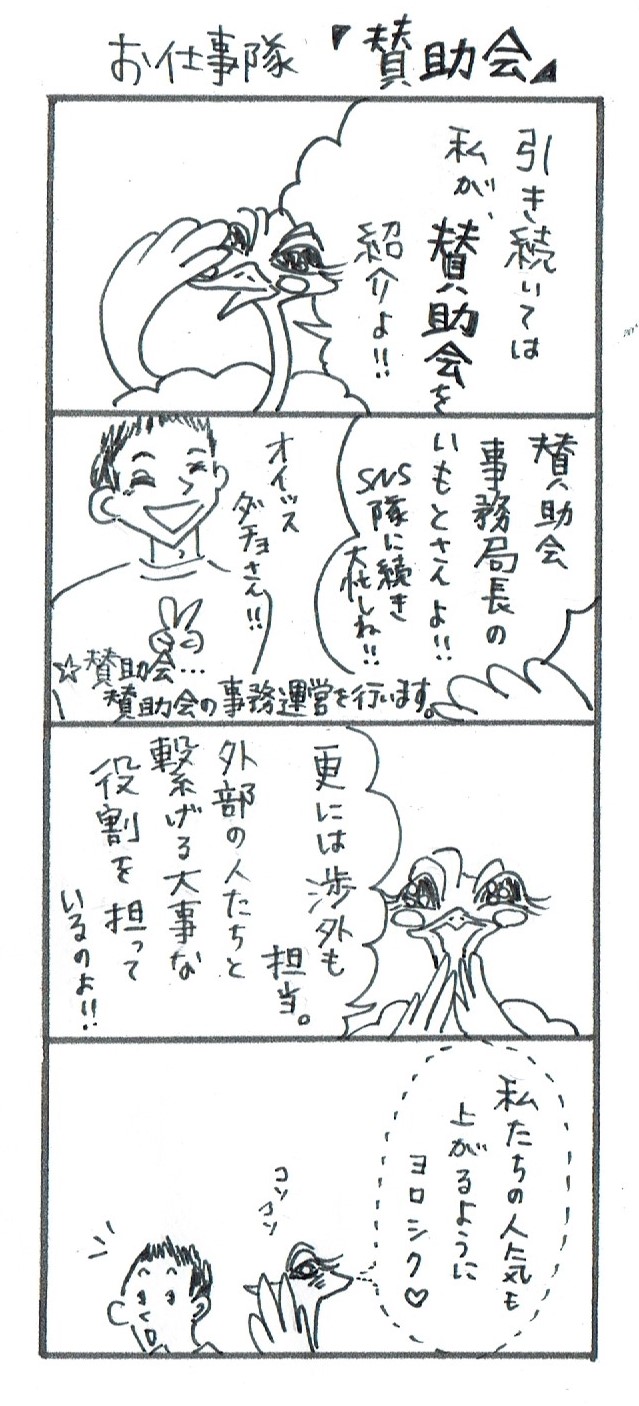 お仕事隊『賛助会』
引き続いては
私が、賛助会を
紹介よ!!
賛助会
事務局長の
いもとさんよ!!
SNS
隊に続き
大忙しね!!
オイッス
ダチョさん!!
☆賛助会…
賛助会の事務運営を行います。
更には渉外も
担当。
外部の人たちと
繋げる大事な
役割を担って
いるのよ!!
私たちの人気も
上がるように
ヨロシク♡
コソ
コソ